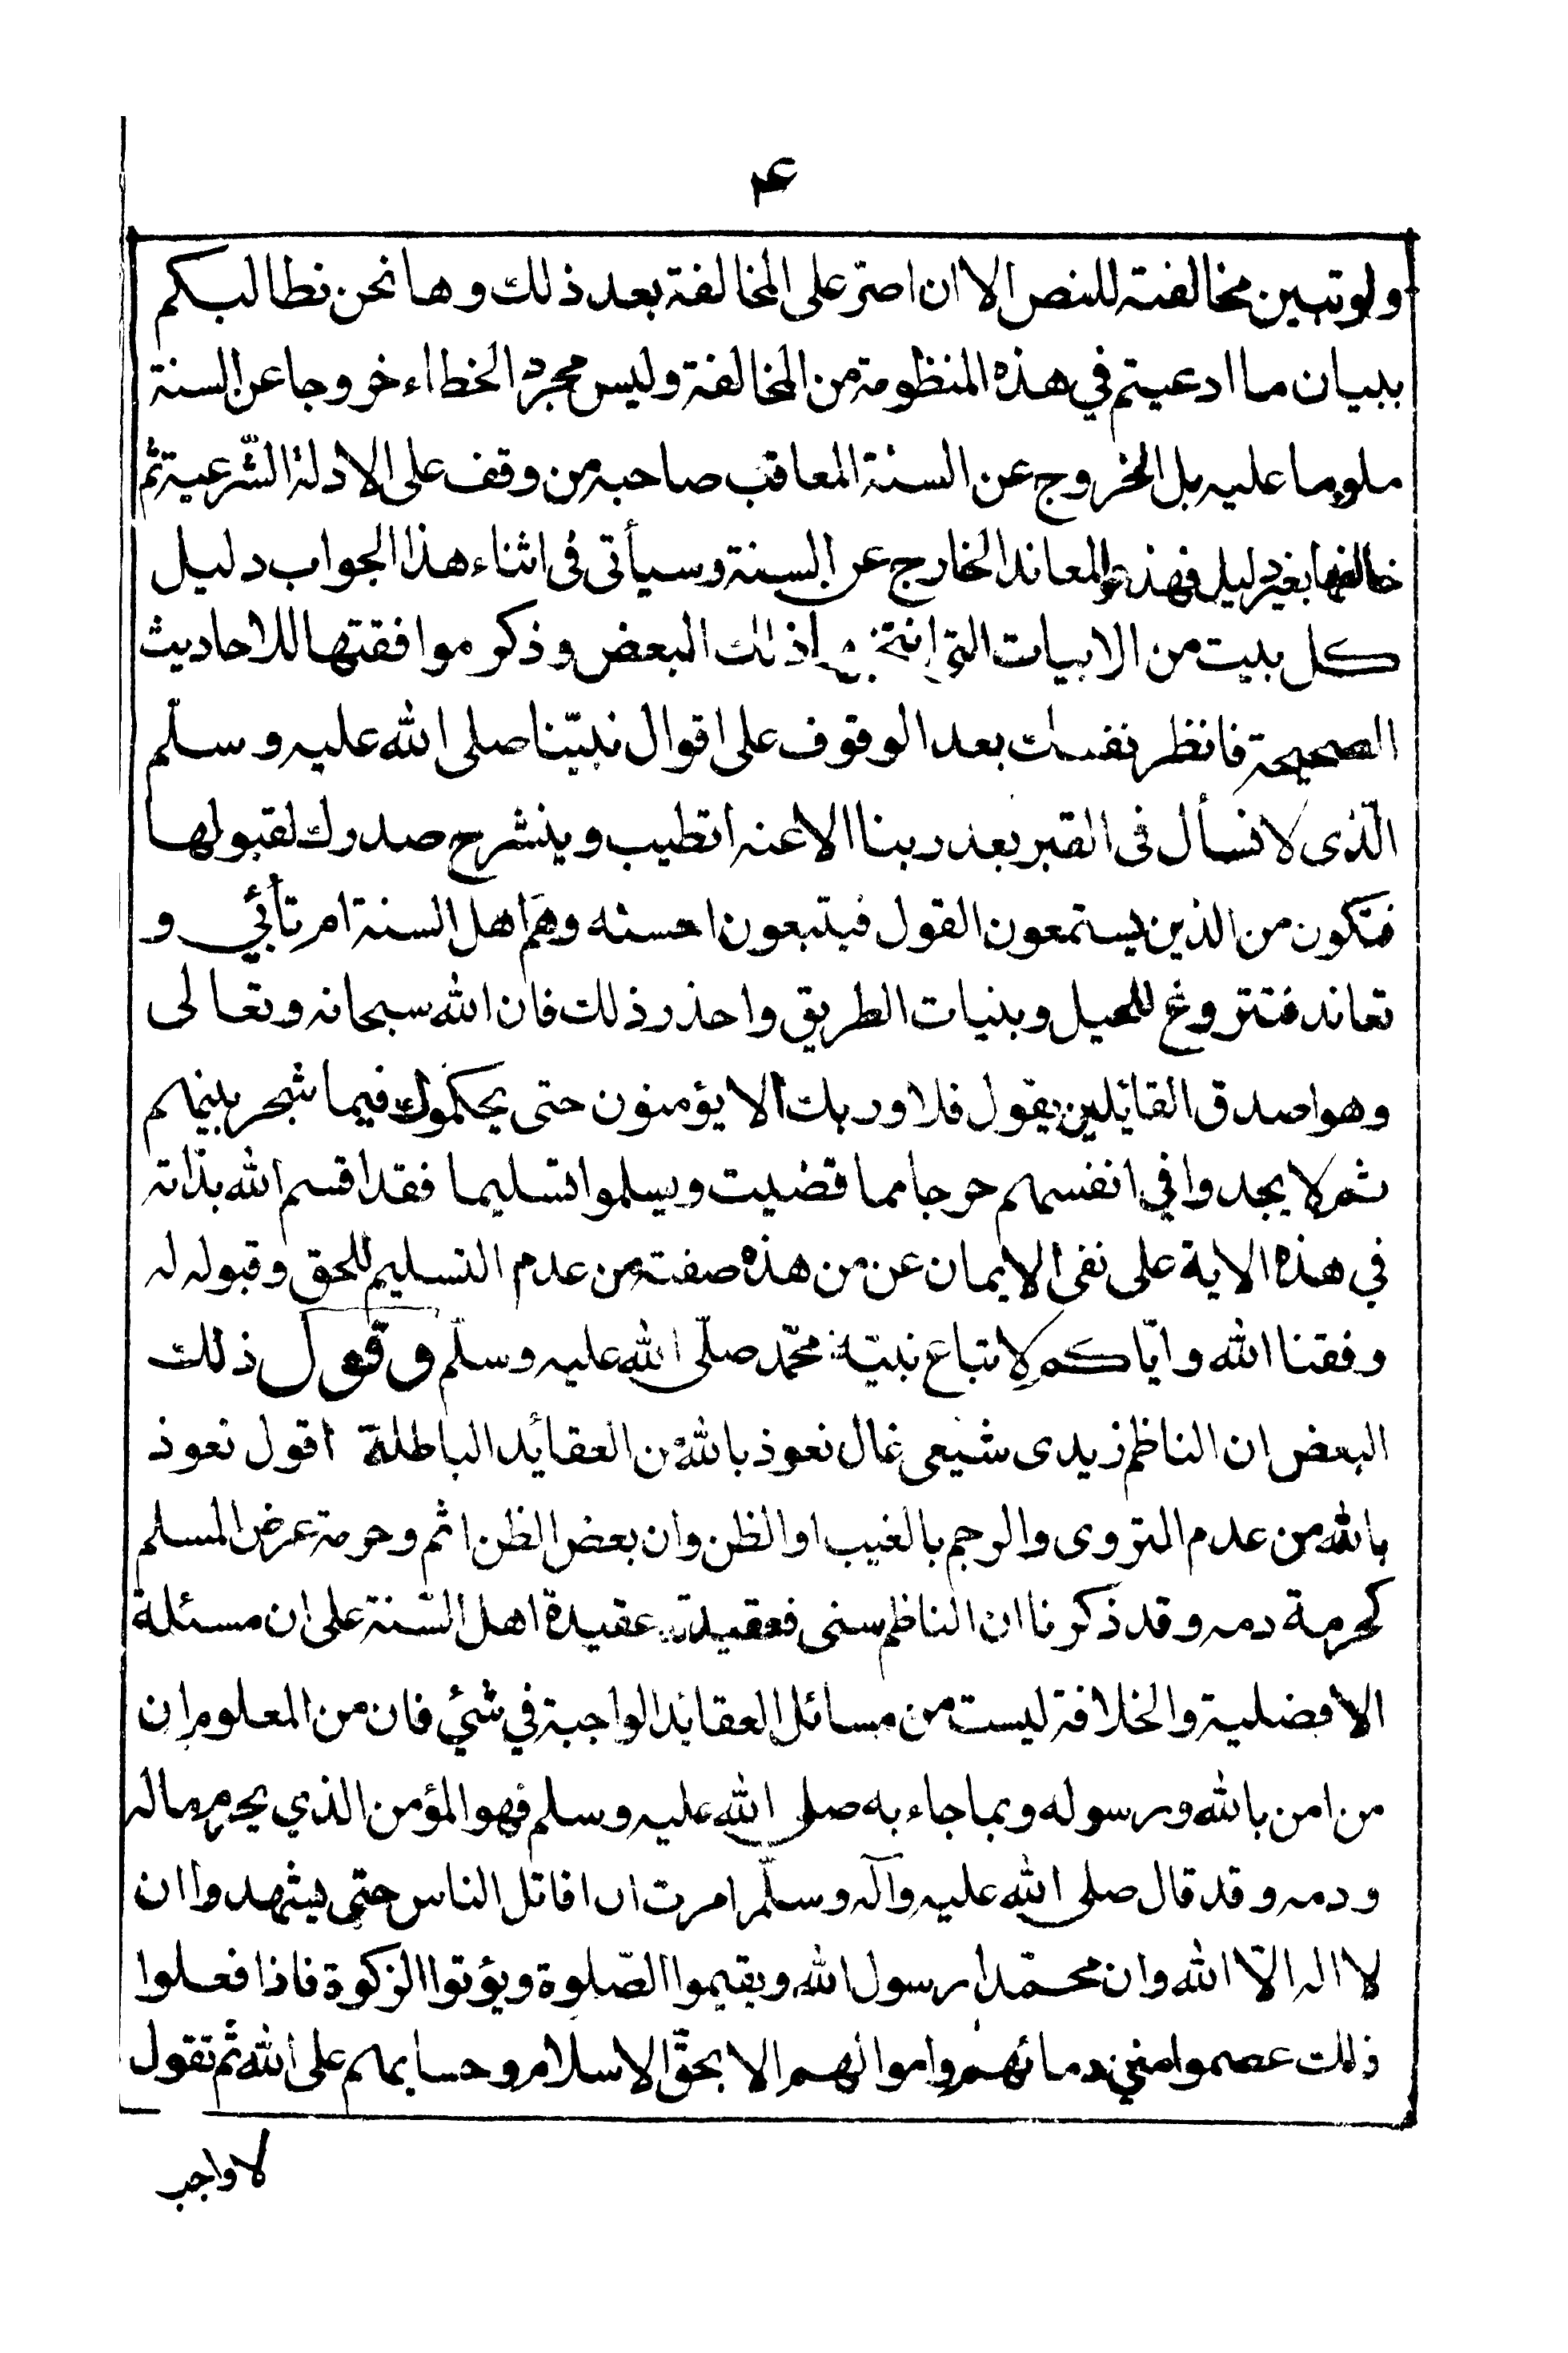 ۴
ولو تبين مخالفته للنص الا ان اصرّ على المخالفة بعد ذلك وها نحن نطالبكم
ببيان ما ادعيتم في هذه المنظومة من المخالفة وليس مجرد الخطاء خروجا عن السنة
ملوما عليه بل الخروج عن السنة المعاقب صاحبه من وقف على الادلة الشّرعية ثم
خالفها بغير دليل فهذا هو المعاند الخارج عن السنة وسيأتى فى اثناء هذا الجواب دليل
كل بيت من الابيات التى ذلك البعض وذكر موافقتها للاحاديث
الصحيحة فانظر نفسك بعد الوقوف على اقوال نبيّنا صلى الله عليه وسلّم
الّذى لا نسأل فى القبر بعد ربنا الا عنه اتطيب وينشرح صدرك لقبولها
فتكون من الذين يستمعون القول فيتبعون احسنه وهم اهل السنة ام تأبي و
تعاند فتتروغ للحيل وبنيات الطريق واحذر ذلك فان الله سبحانه وتعالى
وهو اصدق القائلين يقول فلا وربك لا يؤمنون حتى يحكموك فيما شجر بينهم
ثم لا يجدوا في انفسهم حرجا مما قضيت ويسلموا تسليما فقد اقسم الله بذاته
في هذه الاية على نفى الايمان عن من هذه صفته من عدم التسليم للحق وقبوله له
وفقنا الله وايّاكم لاتباع نبيّه محمّد صلّى الله عليه وسلّم وقول ذلك
البعض ان الناظم زيدى شيعى غال نعوذ بالله من العقائد الباطلة اقول نعوذ
بالله من عدم التروى والرجم بالغيب او الظن وان بعض الظن اثم وحرمة عرض المسلم
كحرمة دمه وقد ذكرنا ان الناظم سنى فعقيدته عقيدة اهل السّنة على ان مسئلة
الافضلية والخلافة ليست من مسائل العقائد الواجبة في شئي فان من المعلوم ان
من امن بالله ورسوله وبما جاء به صلى الله عليه وسلم فهو المؤمن الذي يحرم ماله
ودمه وقد قال صلى الله عليه وآله وسلّم امرت ان اقاتل الناس حتى يشهدوا ان
لا اله الّا الله وان محمّدا رسول الله ويقيموا الصّلوة ويؤتوا الزكوة فاذا فعلوا
ذلك عصموا مني دمائهم واموالهم الا بحقّ الاسلام وحسابهم على الله ثم تقول
لا واجب